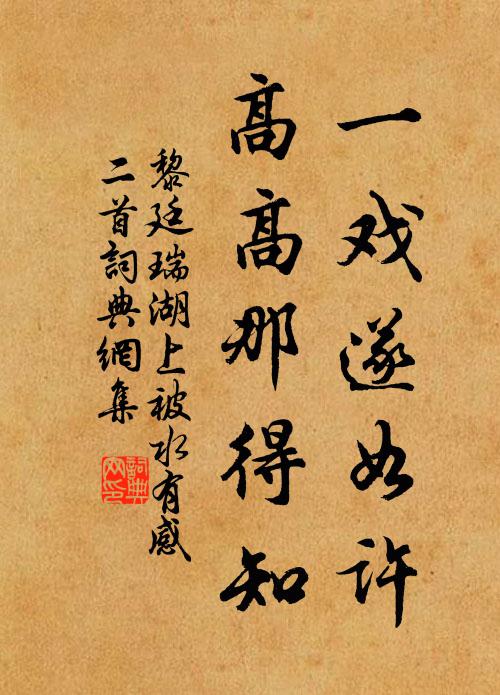 一戏遂如许
高高那得知
黎廷瑞湖上被水有感
二首詞典網集
詞典
网印